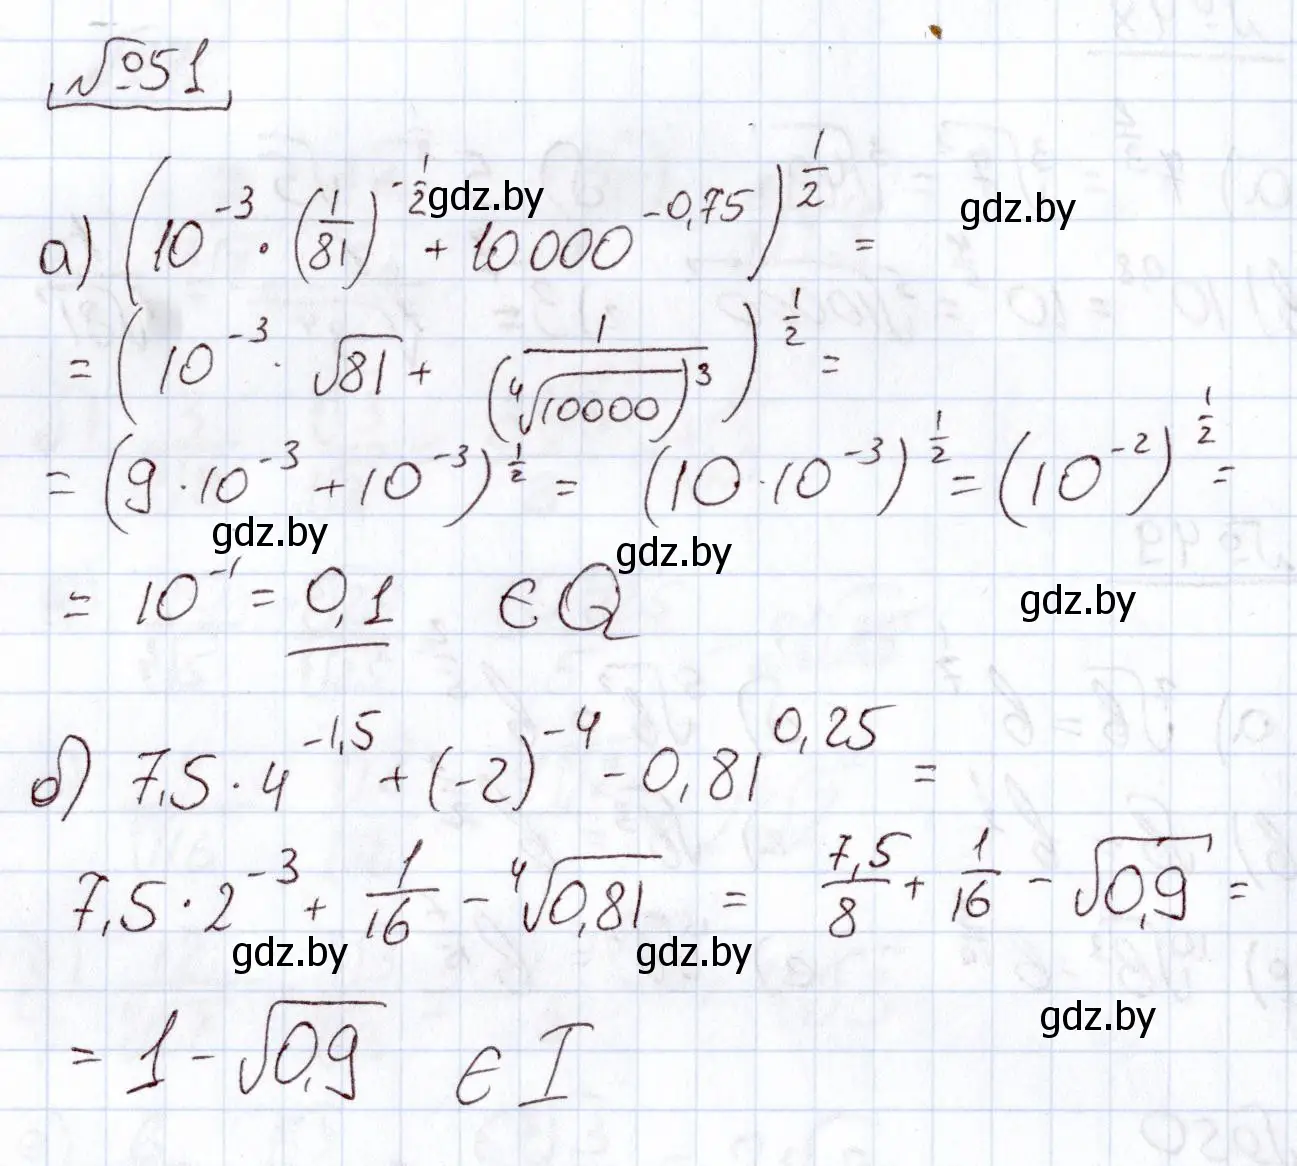 №51
а) (10^{-3} · (1/81)^{-1/2} + 10000^{-0,75})^{1/2} =
= (10^{-3} · √81 + 1/(∜10000)^3)^{1/2} =
= (9 · 10^{-3} + 10^{-3})^{1/2} = (10 · 10^{-3})^{1/2} = (10^{-2})^{1/2} =
= 10^{-1} = 0,1 ∈ Q
б) 7,5 · 4^{-1,5} + (-2)^{-4} - 0,81^{0,25} =
7,5 · 2^{-3} + 1/16 - ∜0,81 = 7,5/8 + 1/16 - √0,9 =
= 1 - √0,9 ∈ I
gdz.by
gdz.by
gdz.by
gdz.by
gdz.by
gdz.by
gdz.by
gdz.by